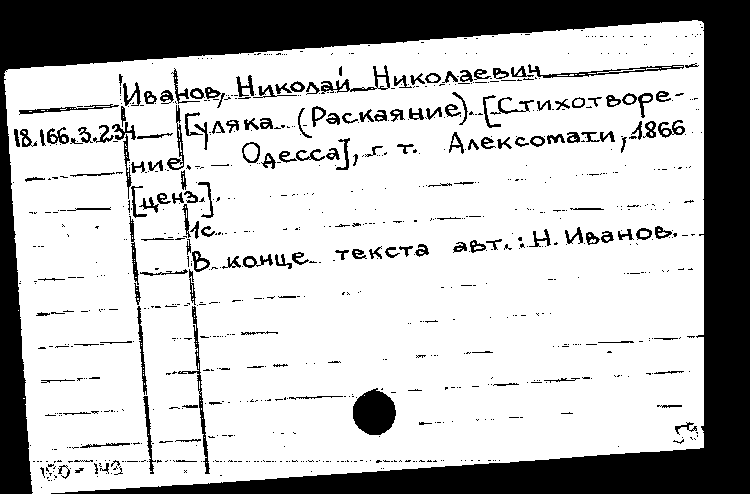 Иванов, Николай Николаевич
18.166.3.234 Гуляка (Раскаяние). [Стихотворе-
ние. Одесса], г. т. Алексомати, 1866
[ценз.].
1с.
В конце текста авт.: Н. Иванов.
59
180-143